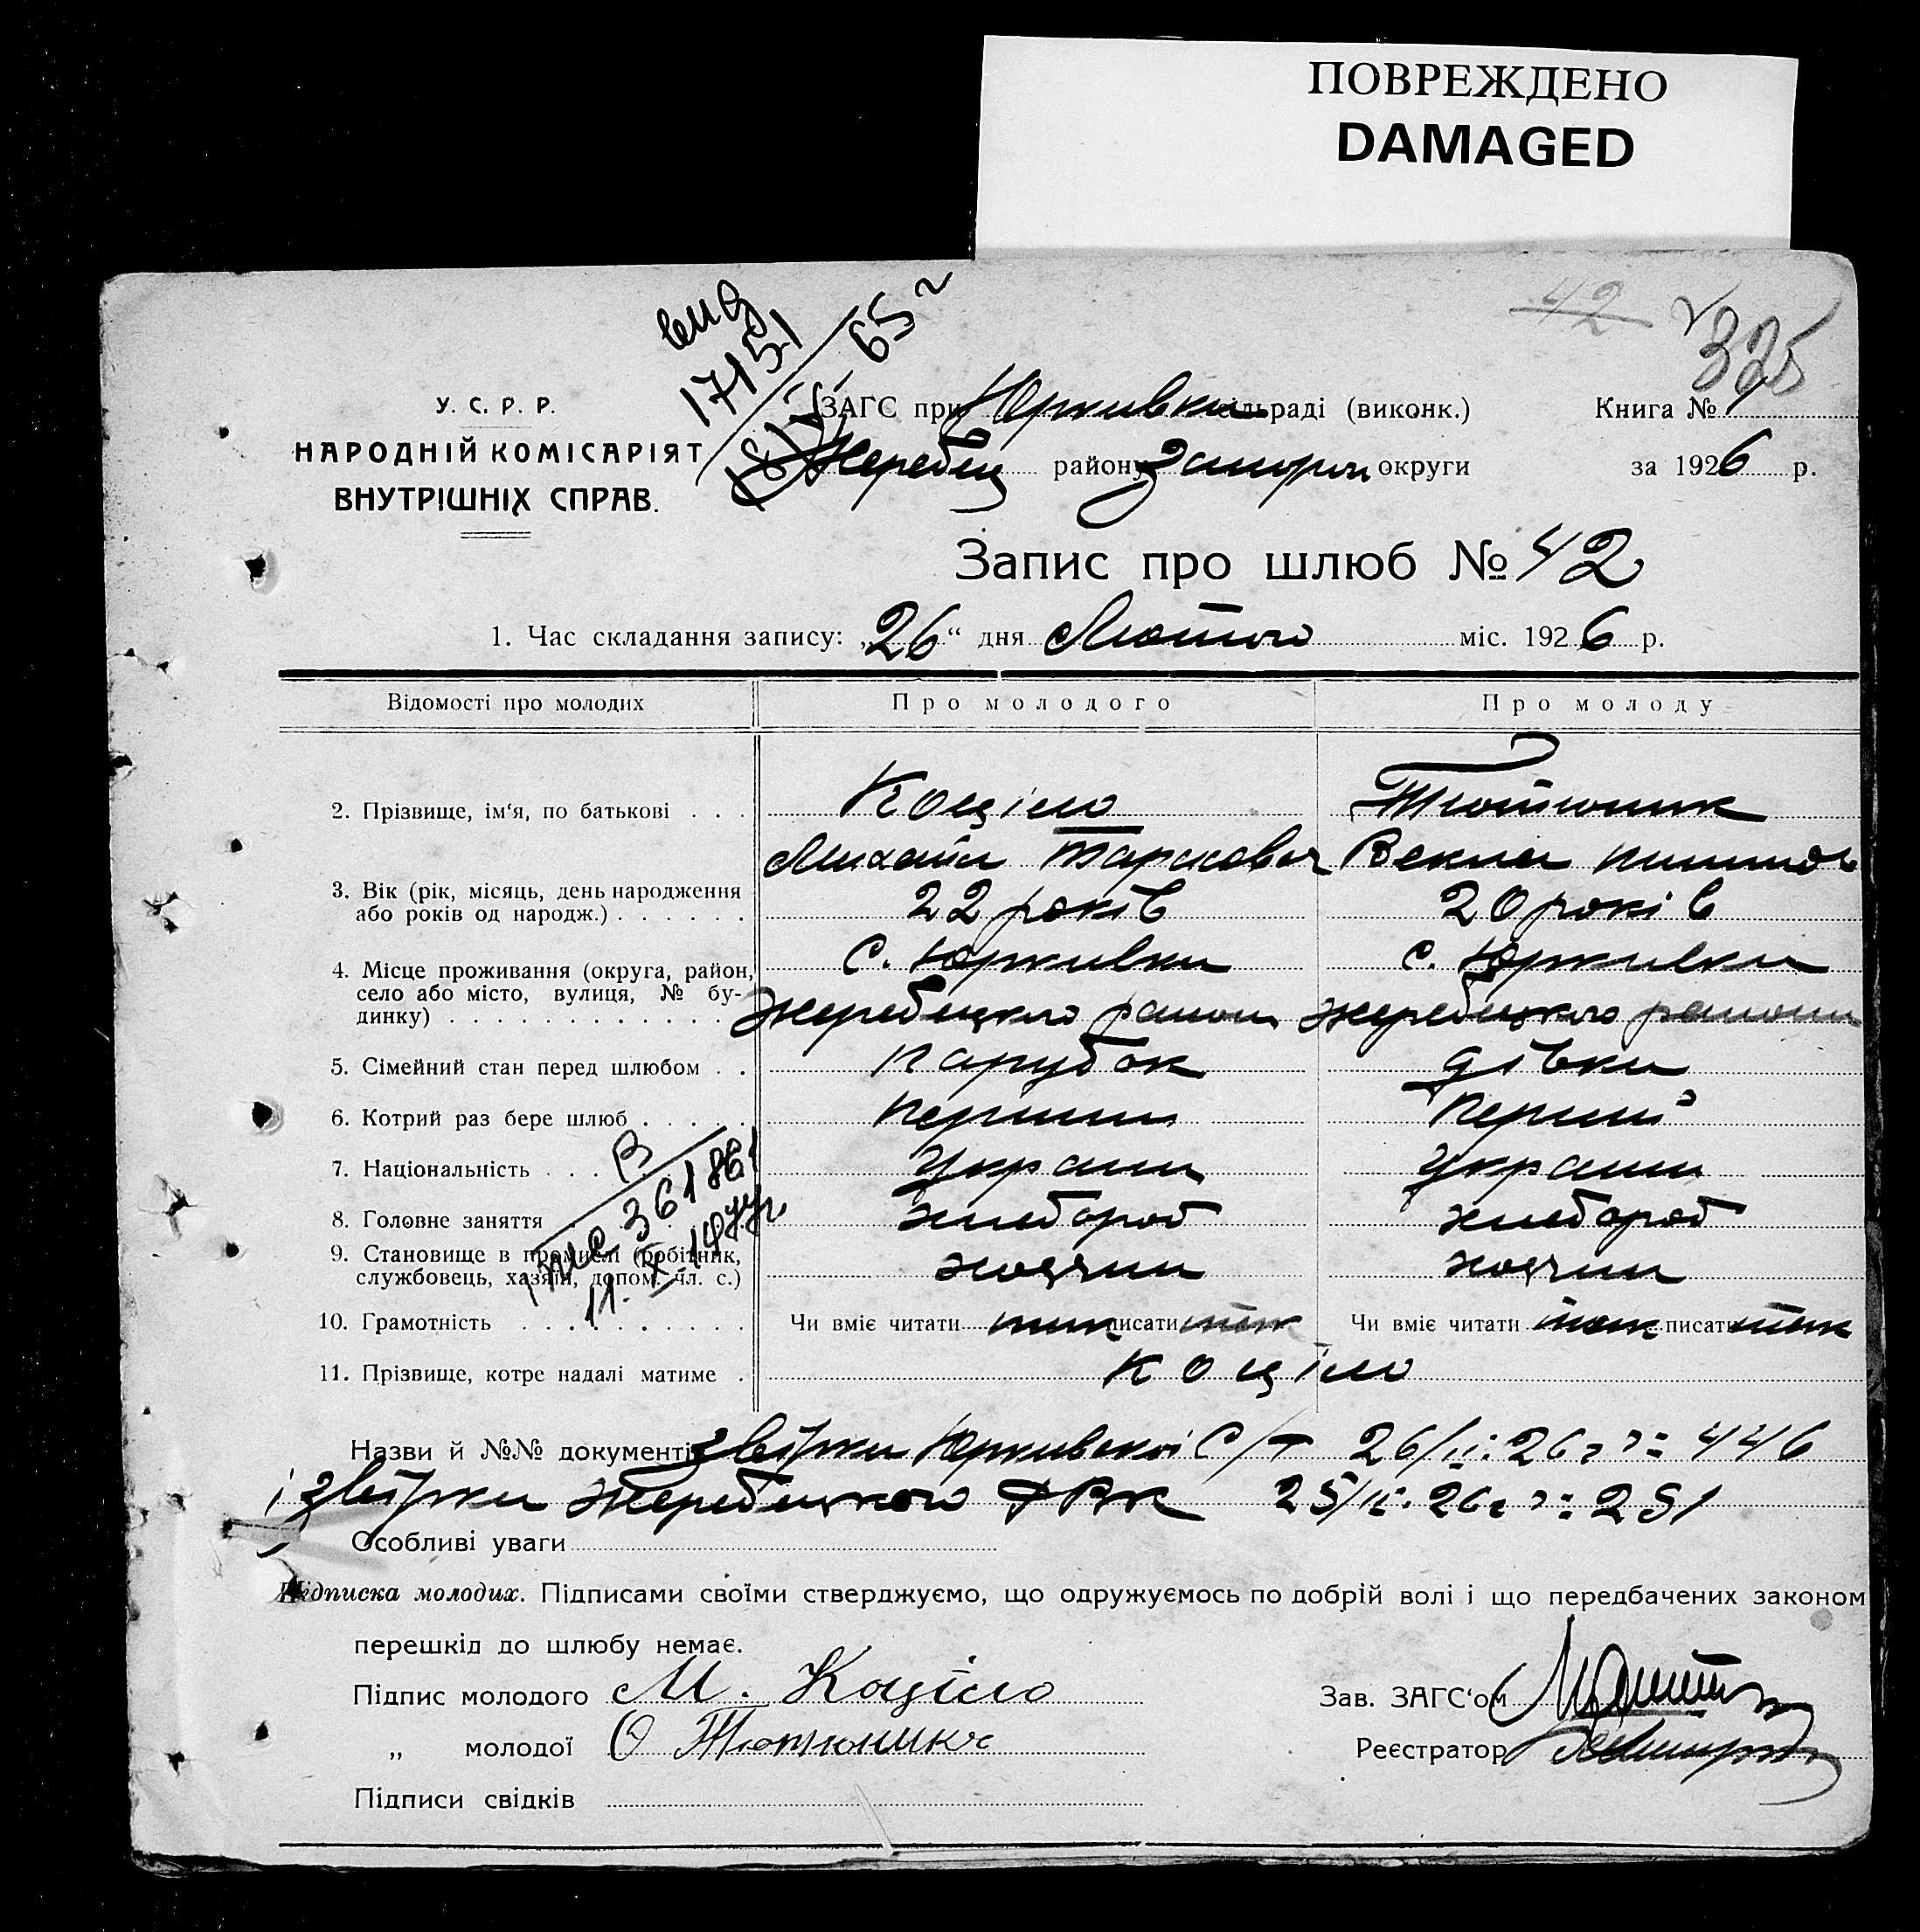 ПОВРЕЖДЕНО
DAMAGED
42
325
17151
65
У. С. Р. Р.
НАРОДНІЙ КОМІСАРІЯТ
ВНУТРІШНІХ СПРАВ.
ЗАГС при Юрківки сільраді (виконк.)
Книга №
Жеребец району Запорж округи
за 1926 р.
Запис про шлюб № 42
1. Час складання запису: „26“ дня Лютого міс. 1926 р.
Відомості про молодих
Про молодого
Про молоду
2. Прізвище, ім‘я, по батькові . . .
Коціло
Михайл Тарасович
Тютюник
Векла
3. Вік (рік, місяць, день народження
або років од народж.) . . . . . .
22 років
20 років
4. Місце проживання (округа, район,
село або місто, вулиця, № бу-
динку) . . . . . . . . . . . .
с. Юрківки
Жеребецкого району
с. Юрківки
Жеребецкого району
5. Сімейний стан перед шлюбом . .
парубок
дівка
6. Котрий раз бере шлюб . . . . .
перший
перший
7. Національність . . .
Україн
Україн
8. Головне заняття
хлебороб
хлебороб
9. Становище в промислі (робітник,
службовець, хазяїн, допом. чл. с.)
хозяин
хозяин
361861
10. Грамотність . . . . . . . . . .
Чи вміє читати так писати так
Чи вміє читати так писати так
11. Прізвище, котре надалі матиме .
Коціло
Назви й №№ документів звідки Юрківської С/Р 26/ІІ. 26 г № 446
і звідки Жеребецкого РВК 25/ІІ. 26 г № 251
Особливі уваги
Підписка молодих. Підписами своїми стверджуємо, що одружуємось по добрій волі і що передбачених законом
перешкід до шлюбу немає.
Підпис молодого М. Коціло
Зав. ЗАГС‘ом
„ молодої О Тютюника
Реєстратор
Підписи свідків